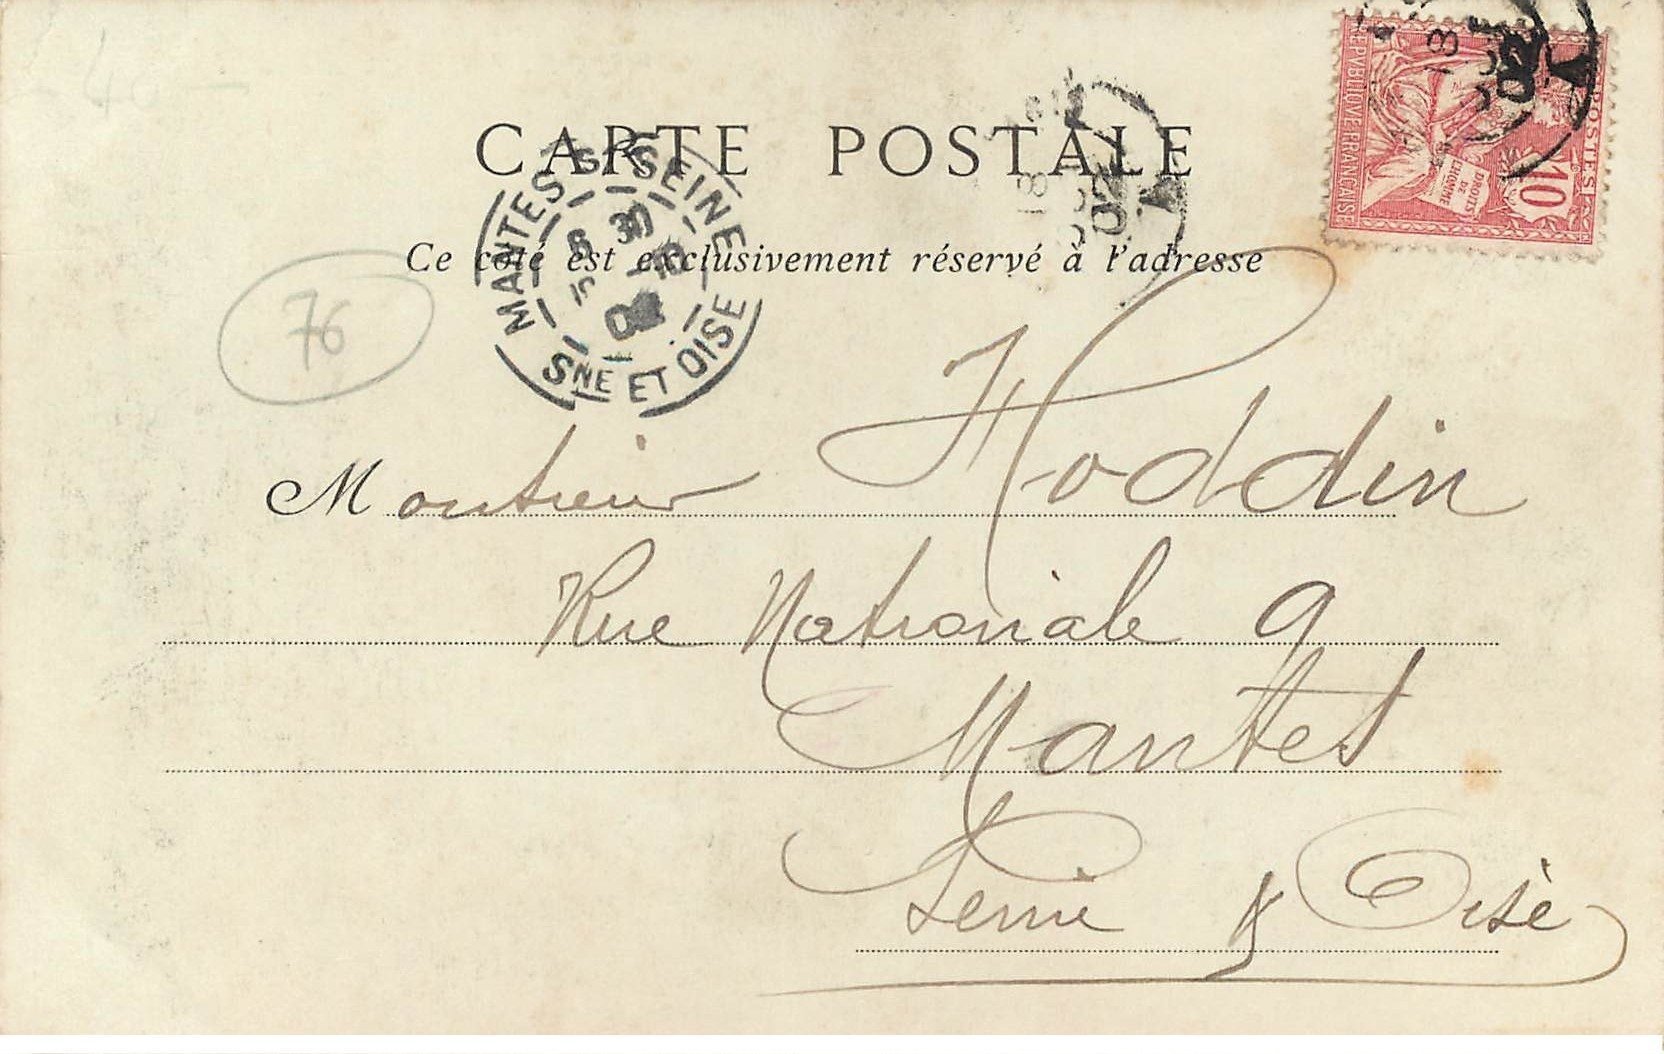 40
CARTE POSTALE
Ce côté est exclusivement réservé à l'adresse
MANTES S. SEINE
8 30
02
SNE ET OISE
18
02
RÉPUBLIQUE FRANÇAISE
POSTES
10
DROITS DE L'HOMME
18
02
76
Monsieur Hoddin
Rue Nationale 9
Mantes
Seine & Oise